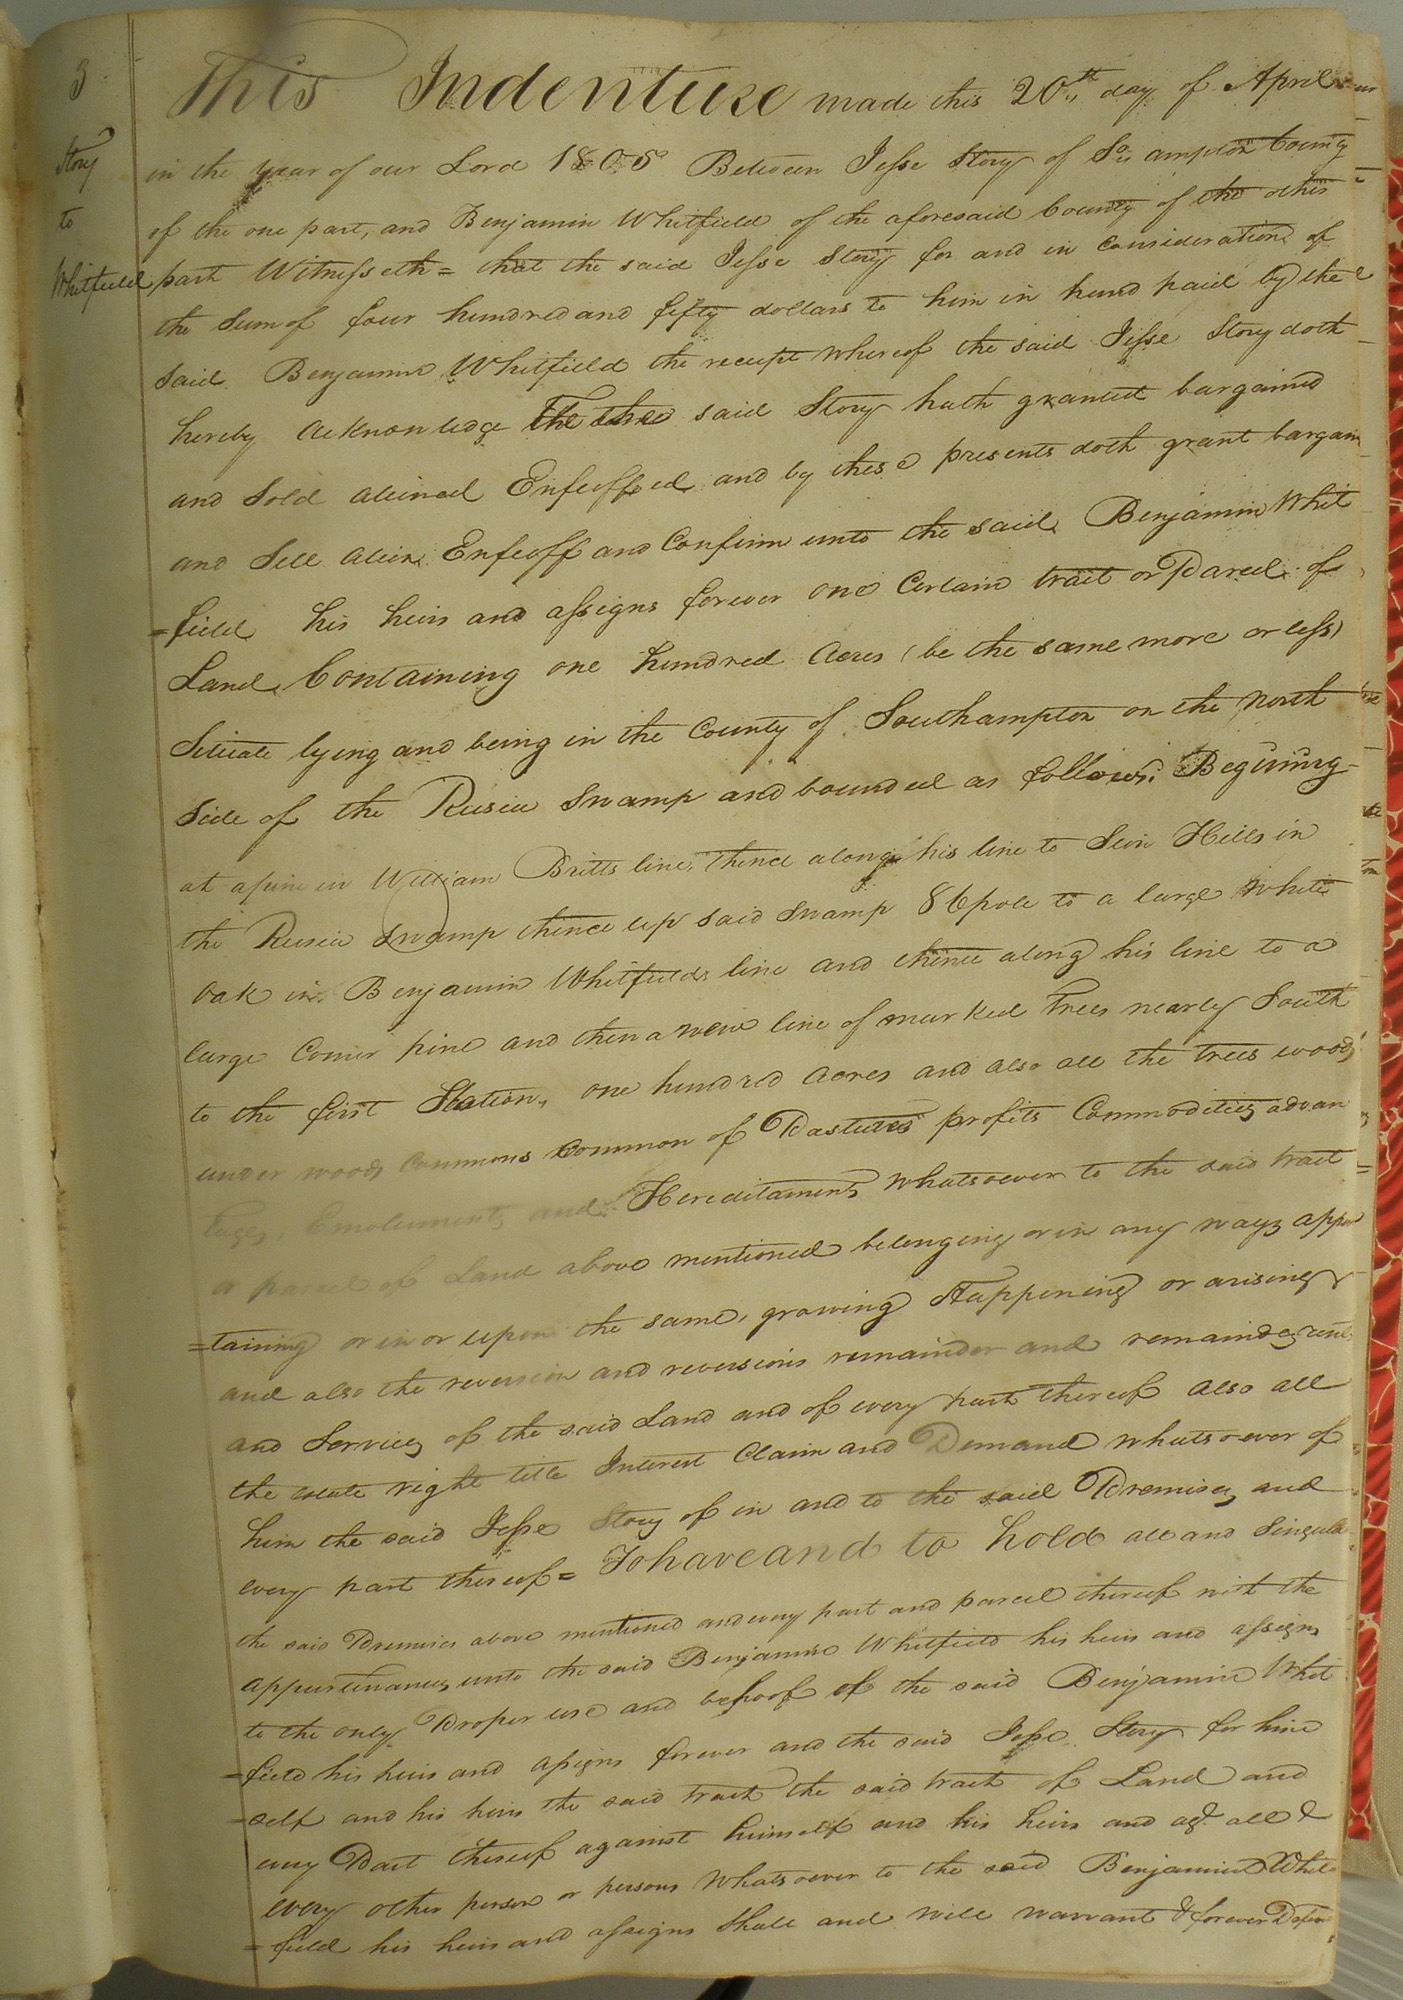 3
Story
to
Whitfield
This Indenture made this 20th day of April
in the year of our Lord 1805 Between Jesse Story of So. ampton County
of the one part, and Benjamin Whitfield of the aforesaid County of the other
part Witnesseth = that the said Jesse Story for and in consideration of
the Sum of four hundred and fifty dollars to him in hand paid by the
said Benjamin Whitfield the receipt whereof the said Jesse Story doth
hereby acknowledge the said Story hath granted bargained
and Sold aliened Enfeoffed and by these presents doth grant bargain
and Sell alien Enfeoff and Confirm unto the said Benjamin Whit
=field his heirs and assigns forever one Certain trait or Parcel of
Land Containing one hundred acres (be the same more or less)
Situate lying and being in the County of Southampton on the North
Side of the Rusia Swamp and bounded as follows. Begining
at a pine in William Britts line, thence along his line to Sion Hills in
the Rusia Swamp thence up said Swamp 86 pole to a large white
oak in Benjamin Whitfields line and thence along his line to a
large Corner pine and then a new line of marked trees nearly South
to the first Station, one hundred acres and also all the trees woods
under woods Commons Common of Pastures profits Commodities advan
tages, Emoluments and Hereditaments whatsoever to the said tract
or parcel of Land above mentioned belonging or in any ways apper
=taining or in or upon the same, growing Happening or arising
and also the reversion and reversions remainder and remainders rents
and Services of the said Land and of every part thereof also all
the estate right title Interest Claim and Demand whatsoever of
him the said Jesse Story of in and to the said Premises and
every part thereof = To have and to hold all and Singular
the said Premises above mentioned and every part and parcel thereof with the
appurtenances unto the said Benjamin Whitfield his heirs and assigns
to the only Proper use and behoof of the said Benjamin Whit
=field his heirs and assigns forever and the said Jesse Story for him
=self and his heirs the said tract the said tract of Land and
every Part thereof against himself and his heirs and agt. all &
every other person or persons whatsoever to the said Benjamin Whit
=field his heirs and assigns Shall and will warrant & forever Defend